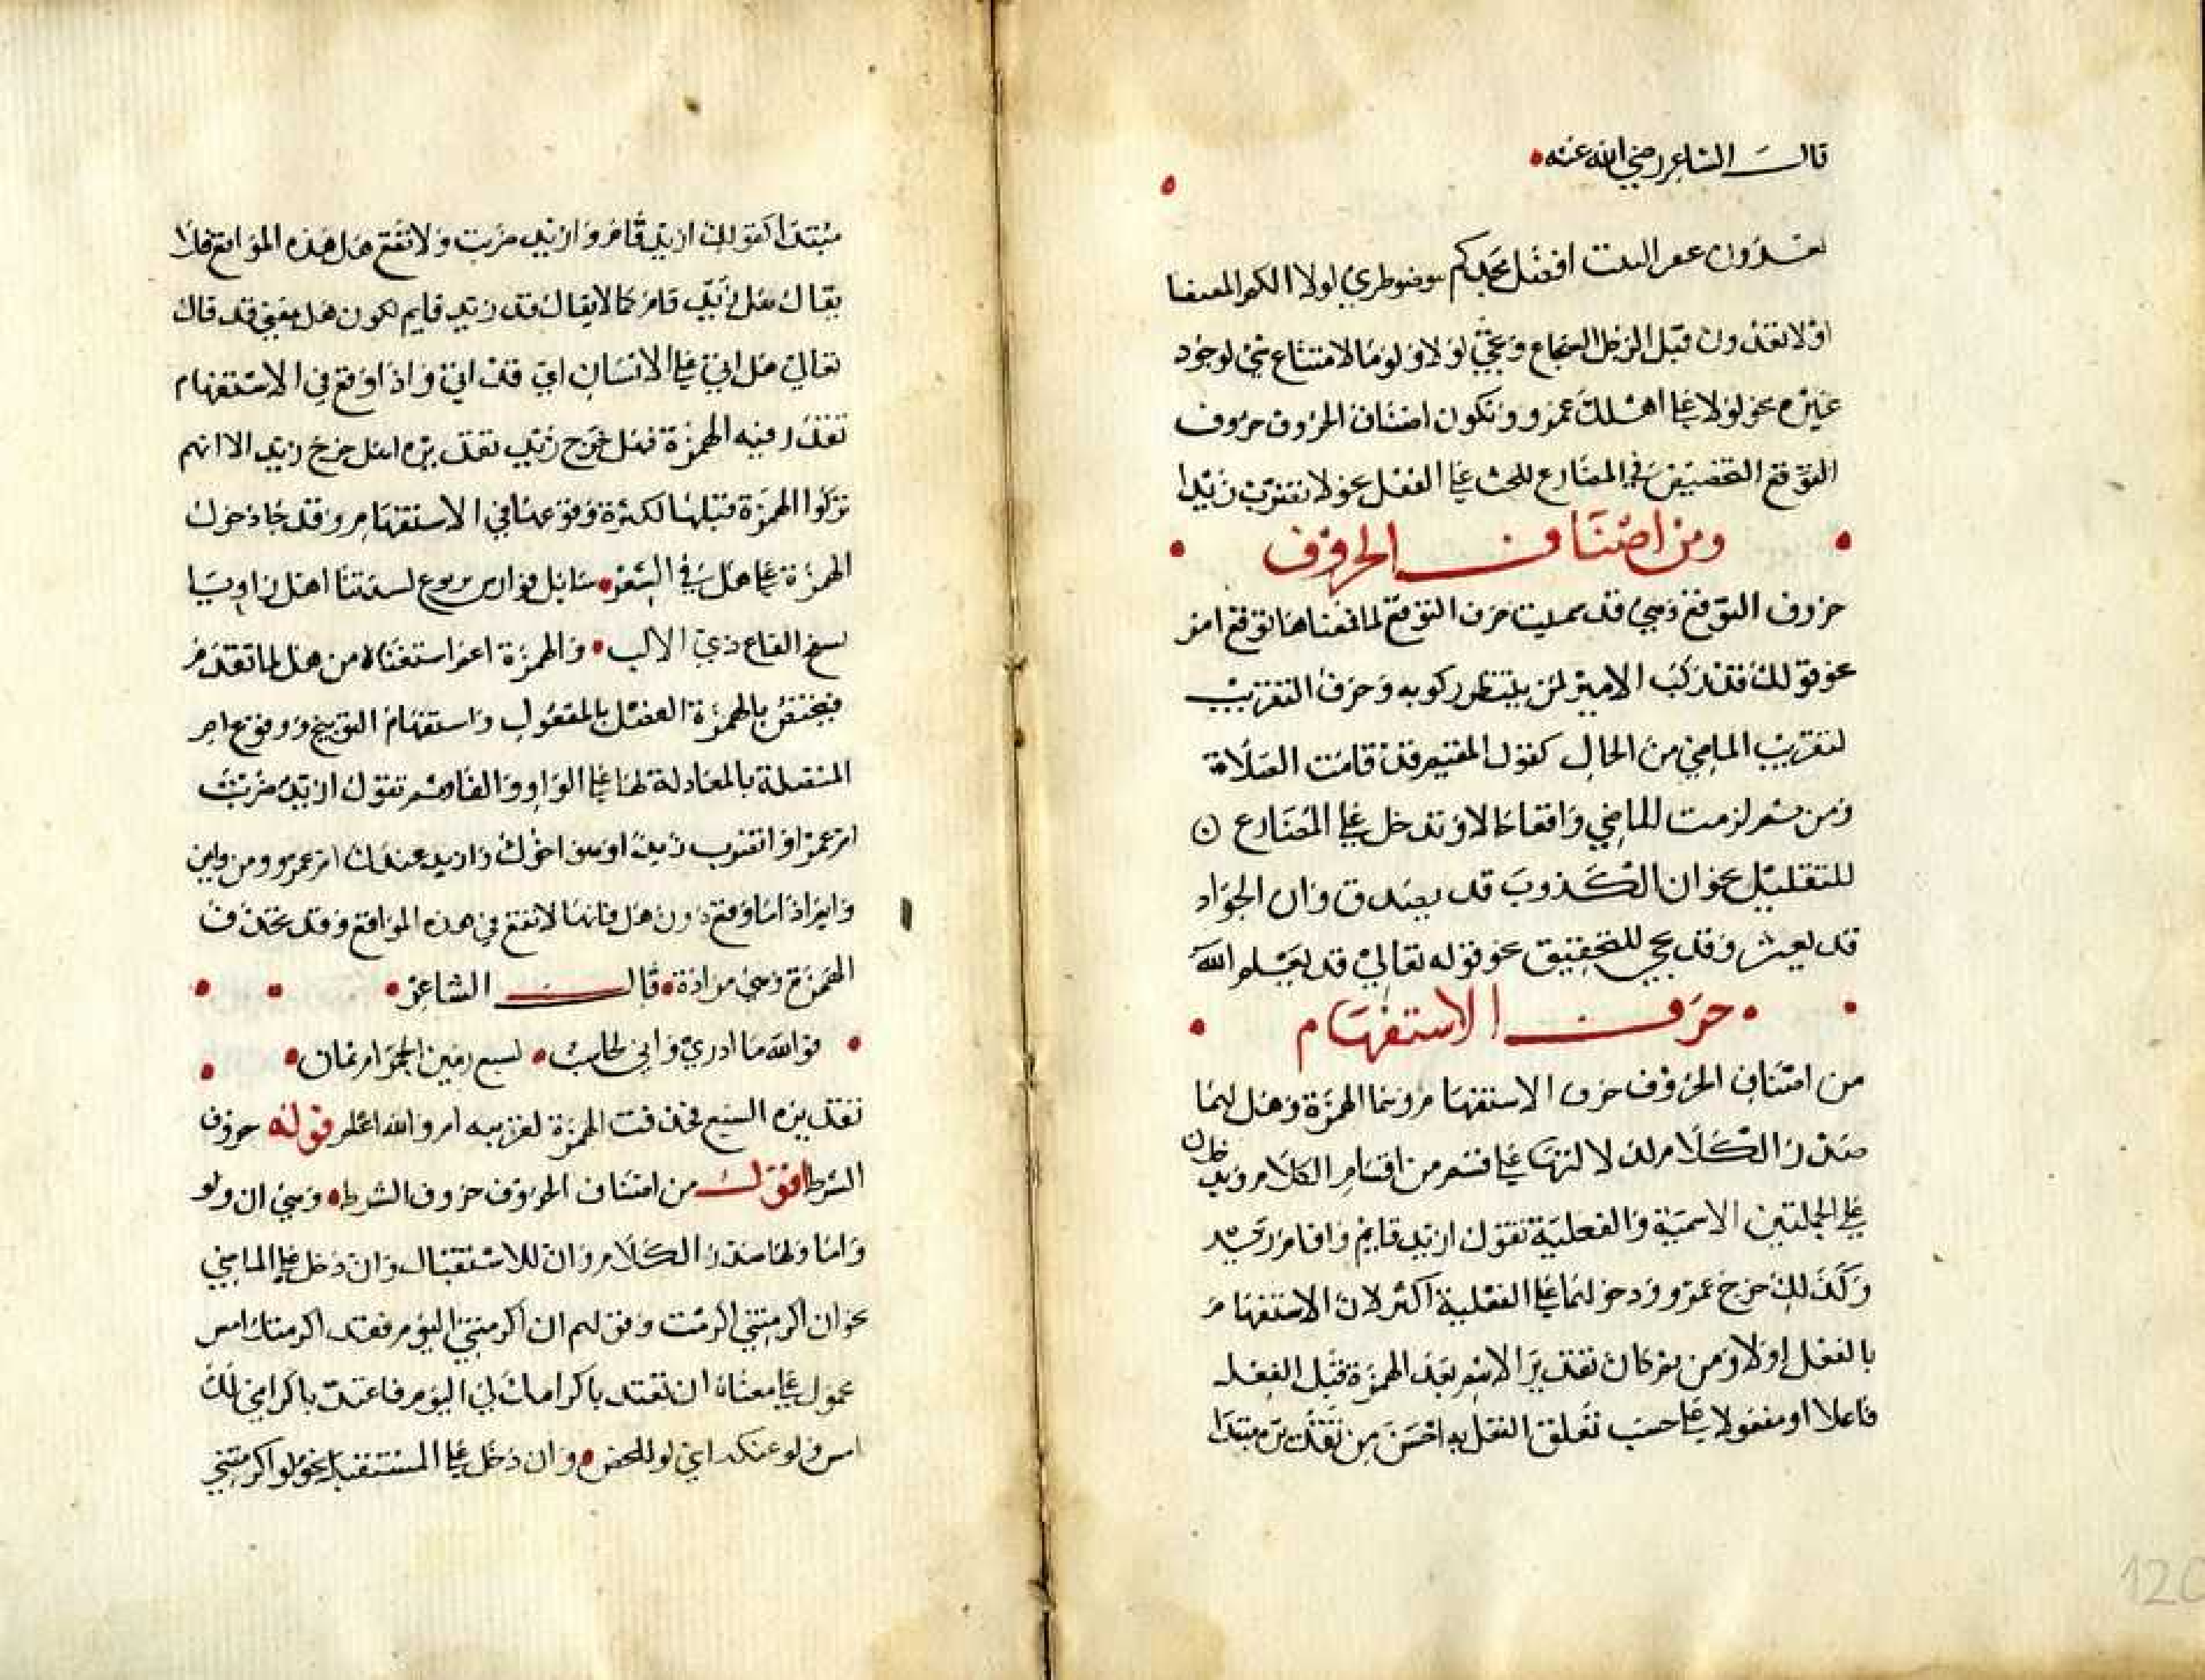 قالـــ الشاعر رضي الله عنه
تعدون عقر النيب افضل مجدكم بني ضوطري لولا الكمي المقنعا
اولا تعدون قتل الرجل الشجاع وتجي لولا ولوما لامتناع شي لوجود
غيره نحو لولا علي اهلك عمرو وتكون اصناف الحروف حروف
التوقع التحضيض في المضارع للحث علي الفعل نحو لا تضرب زيدا
ومن اصنافـــ الحروف
حروف التوقع وهي قد سميت حرف التوقع لما معناها توقع امر
نحو قولك قد ركب الامير لمن ينتظر ركوبه وحرف التقريب
لتقريب الماضي من الحال كقول المقيم قد قامت الصلاة
ومن ثم لزمت الماضي واقعا حالا وتدخل علي المضارع
للتقليل نحو ان الكذوب قد يصدق وان الجواد
قد يعثر وقد تجي للتحقيق نحو قوله تعالي قد يعلم الله
حرفـــ الاستفهام
من اصناف الحروف حرف الاستفهام وهما الهمزة وهل لهما
صدر الكلام لدلالتها علي قسم من اقسام الكلام ويدخلان
علي الجملتين الاسمية والفعلية تقول ازيد قايم واقام زيد
وكذلك خرج عمرو ودخولهما علي الفعلية اكثر لان الاستفهام
بالفعل اولا ومن ثم كان تقدير الاسم بعد الهمزة قبل الفعل
فاعلا او مفعولا علي حسب تعلق الفعل به احسن من تقديره مبتدا
مبتدا كقولك ازيد قام وازيد ضربت ولا تقع هل هذه المواقع فلا
يقال هل زيد قام كما لا يقال قد زيد قايم لكون هل بمعني قد قال
تعالي هل اتي علي الانسان اي قد اتي واذا وقع في الاستفهام
تقدر فيه الهمزة فهل خرج زيد تقديره اهل خرج زيد الا انهم
تركوا الهمزة قبلها لكثرة وقوعها في الاستفهام وقد جا دخول
الهمزة علي هل في الشعر سايل فوارس يربوع لشدتنا اهل راونا
بسفح القاع ذي الاكم والهمزة اعم استعمالا من هل لما تقدم
فيختص بالهمزة الفصل بالمفعول واستفهام التوبيخ ووقوع ام
المتصلة بالمعادلة لها علي الواو والفا وثم تقول ازيد ضربت
ام عمرا واتضرب زيدا وهو اخوك وازيد عندك ام عمرو ومن واين
وايم اذا ما وقع دون هل فانها لا تقع في هذه المواقع وقد تحذف
الهمزة وهي مرادة قالـــ الشاعر
فوالله ما ادري واني لحاسب بسبع رمين الجمر ام بثمان
تقديره ابسبع فحذفت الهمزة لقرينة ام والله اعلم قوله حروف
الشرط اقولـــ من اصناف الحروف حروف الشرط وهي ان ولو
واما ولها صدر الكلام وان للاستقبال وان دخل علي الماضي
نحو ان اكرمتني اكرمت وقولهم ان اكرمتني اليوم فقد اكرمتك امس
محمول علي معناه ان تعتد باكرامك لي اليوم فاعتد باكرامي لك
امس ولو عكسه اي لو للمضي وان دخل علي المستقبل نحو لو اكرمتني